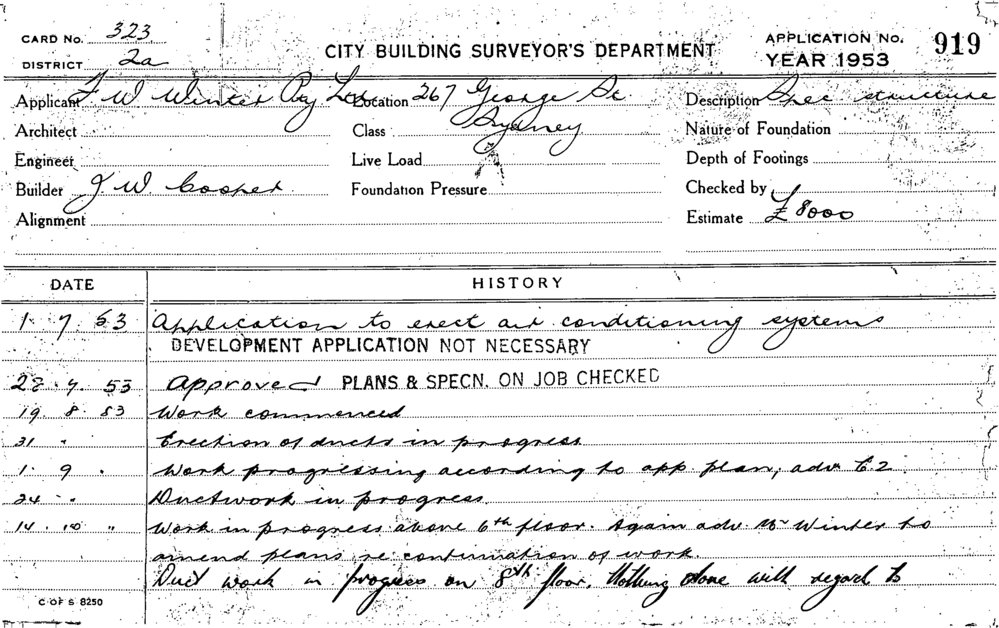 CARD No. 323
DISTRICT 2a
CITY BUILDING SURVEYOR'S DEPARTMENT
APPLICATION No. 919
YEAR 1953
Applicant F W Winter Pty Ltd Location 267 George St. Sydney Description Spec structure
Architect Class Nature of Foundation
Engineer Live Load Depth of Footings
Builder J W Cooper Foundation Pressure Checked by
Alignment Estimate £8000
DATE HISTORY
1 7 53 Application to erect air conditioning systems
DEVELOPMENT APPLICATION NOT NECESSARY
22 . 7 . 53 Approved PLANS & SPECN. ON JOB CHECKED
19 . 8 . 53 Work commenced
31 " Erection of ducts in progress
1 . 9 . Work progressing according to app. plan, adv.
24 . " Ductwork in progress.
14 . 10 " Work in progress above 6th floor. Again adv. Mr Winter to
amend plans re continuation of work.
Duct work in progress on 8th floor. Nothing done with regard to
C OF S 8250